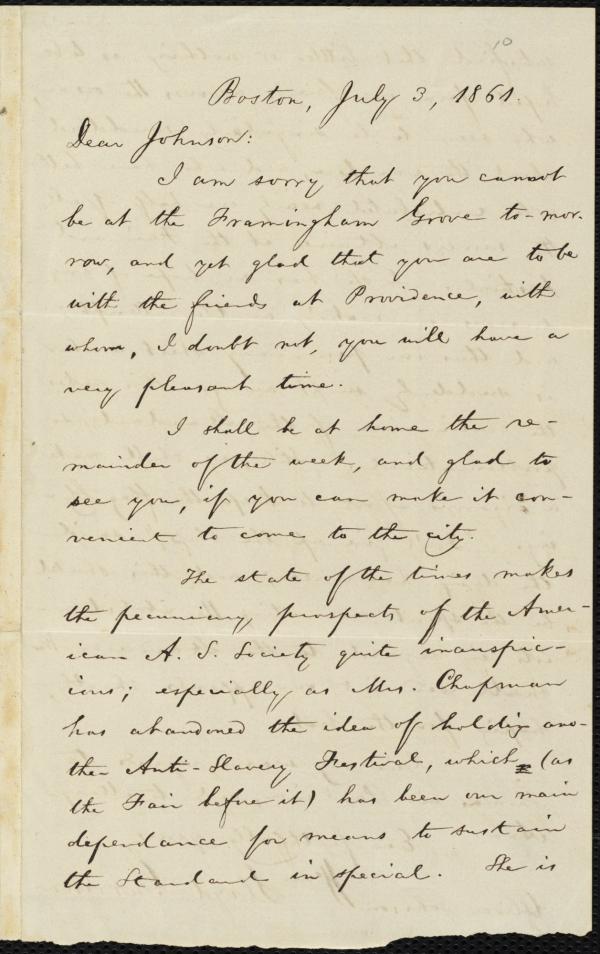 10
Boston, July 3, 1861.
Dear Johnson:
I am sorry that you cannot
be at the Framingham Grove to-mor-
row, and yet glad that you are to be
with the friends at Providence, with
whom, I doubt not, you will have a
very pleasant time.
I shall be at home the re-
mainder of the week, and glad to
see you, if you can make it con-
venient to come to the city.
The state of the times makes
the pecuniary prospects of the Amer-
ican A. S. Society quite inauspic-
ious; especially as Mrs. Chapman
has abandoned the idea of holding ano-
ther Anti-Slavery Festival, which (as
the Fair before it) has been our main
dependance for means to sustain
the Standard in special. She is